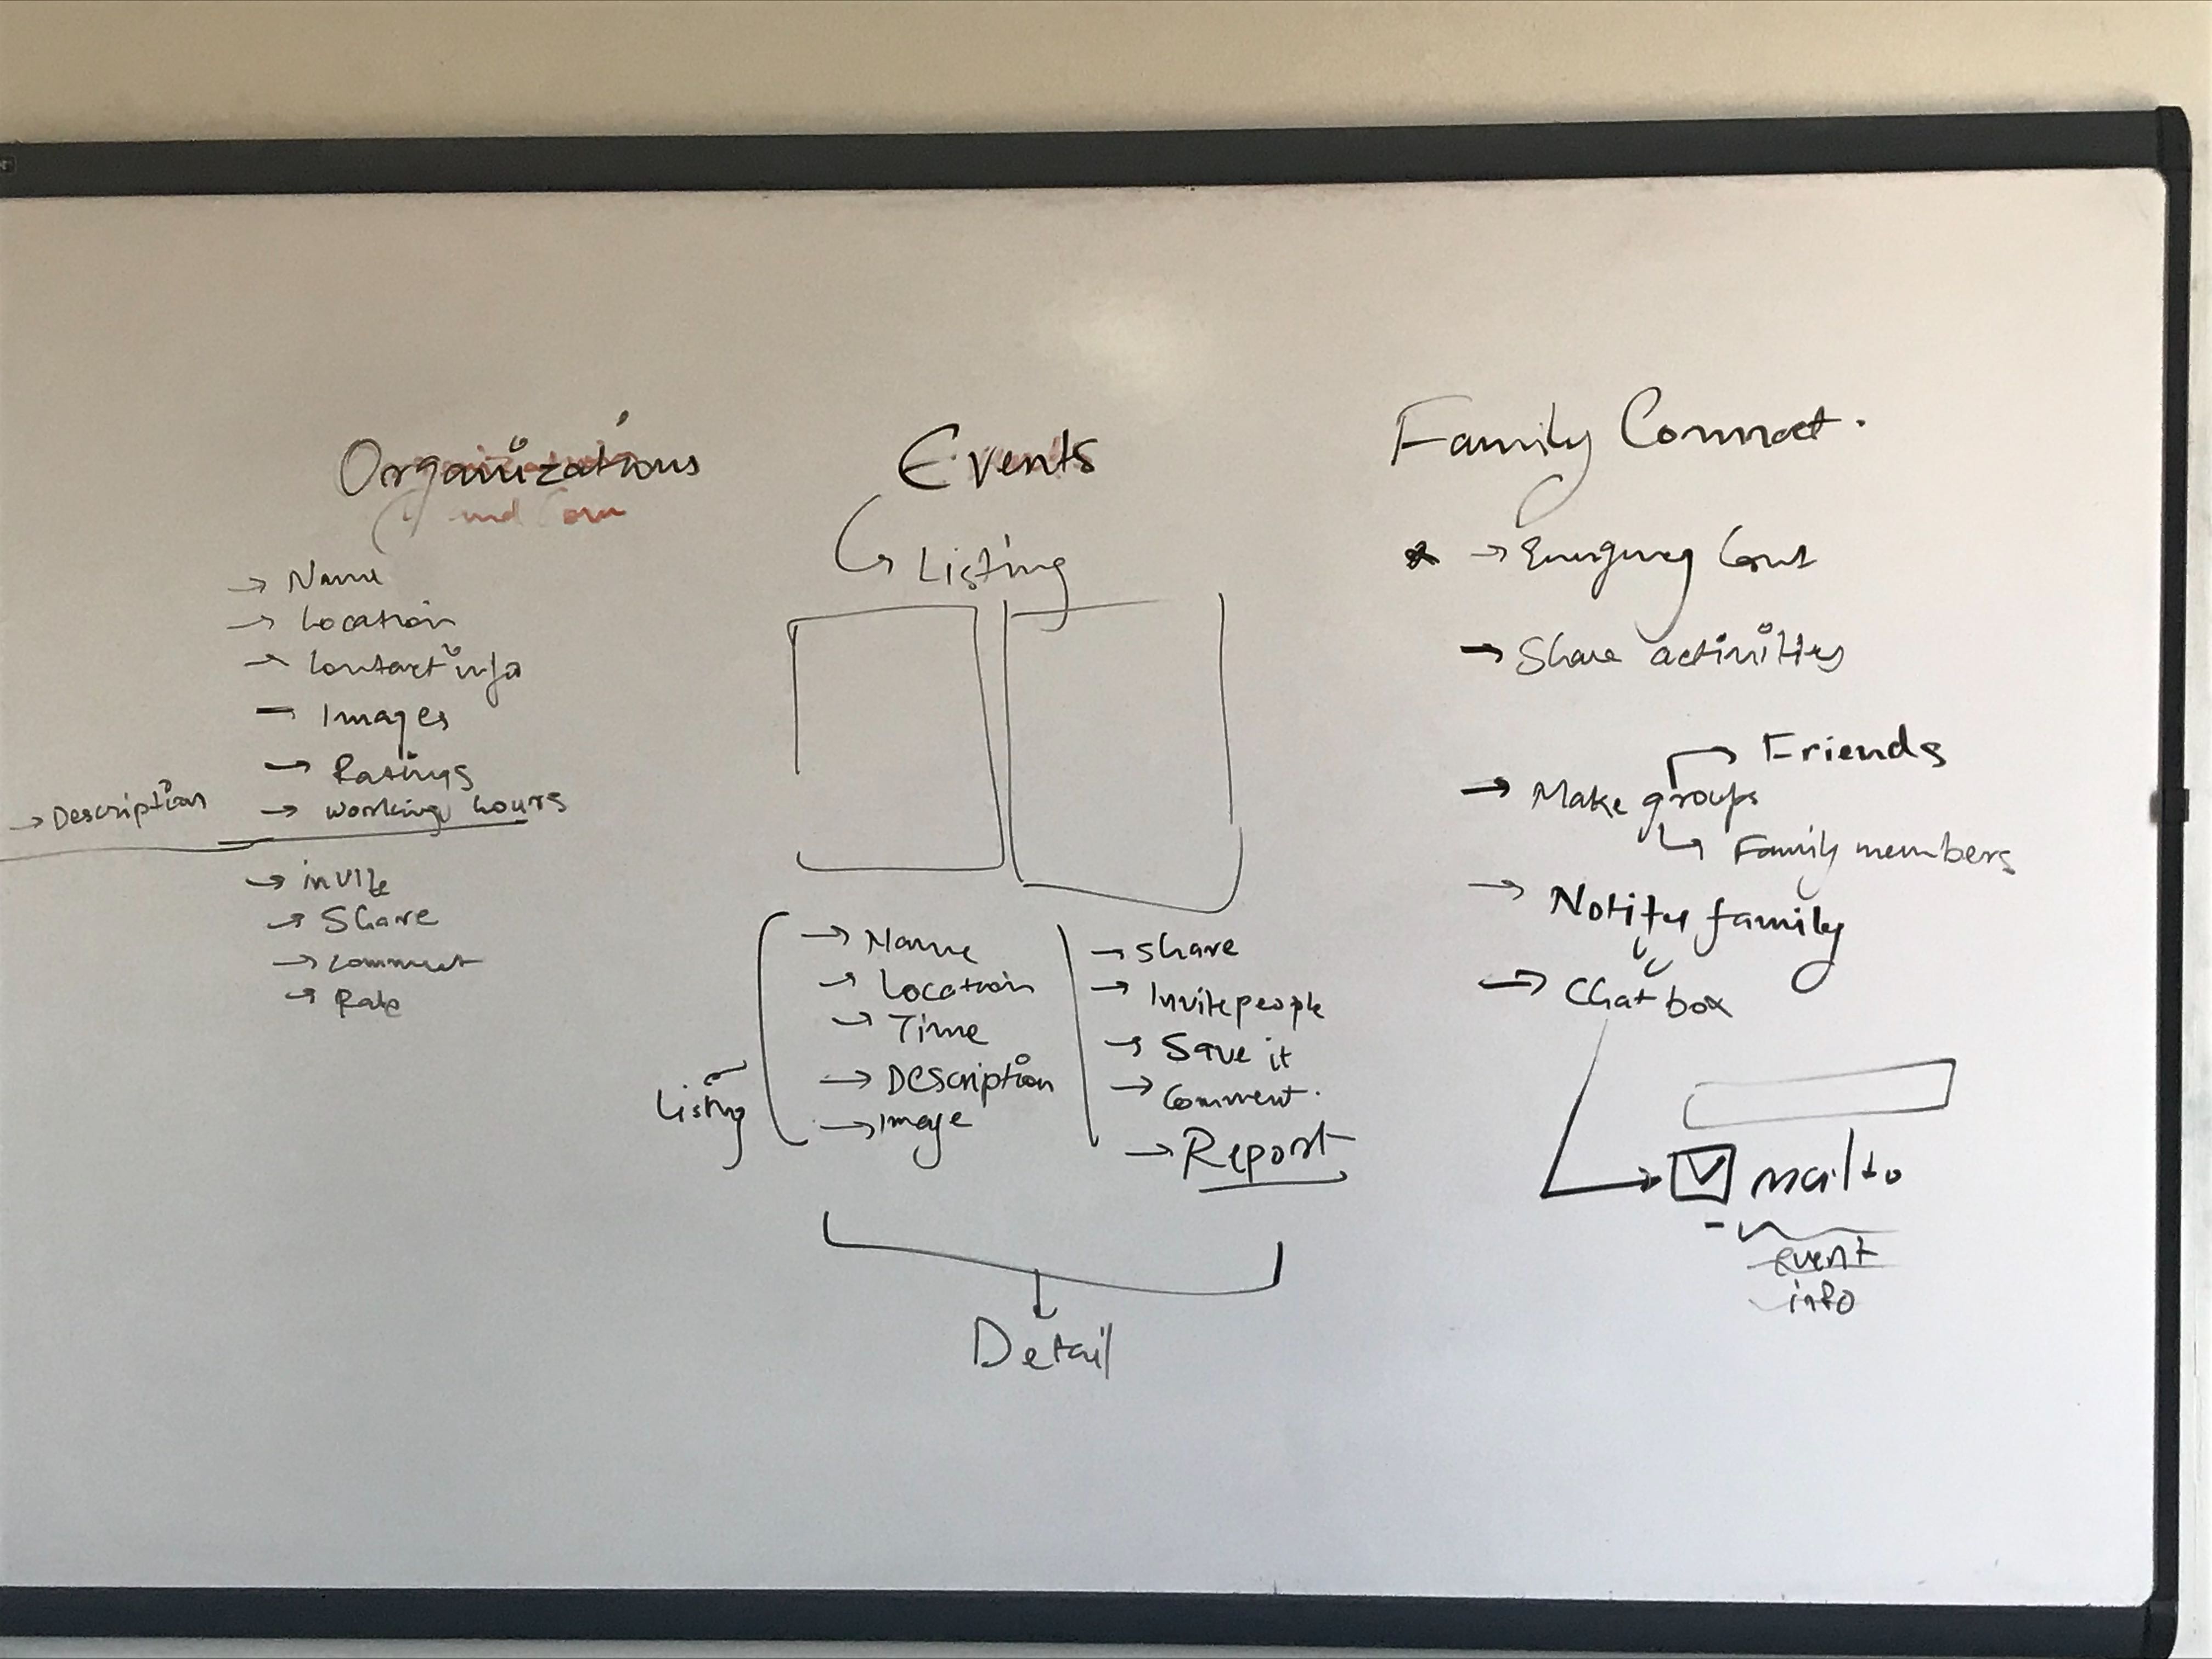 Organizations
→ Name
→ Location
→ Contact info
– Images
→ Ratings
→ Description
→ Working hours
→ invite
→ Share
→ comment
→ Rate
Events
Listing
Listing
→ Name
→ Location
→ Time
→ Description
→ Image
→ share
→ Invite people
→ Save it
→ Comment.
→ Report
Detail
Family Connect.
→ Emergency Cont
→ Share activities
→ Make groups
Friends
Family members
→ Notify family
→ Chat box
mail to
event
info